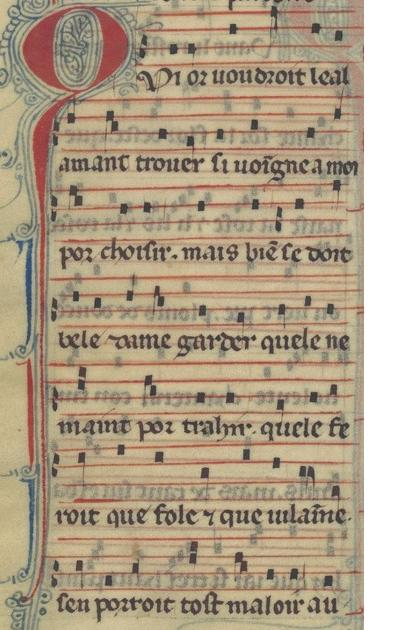 Qi or uoudroit leal
amant trouer si uoīgne a moi
por choisir. mais biē se doit
bele dame garder quele ne
maint por trahir. quele fe
roit que fole ⁊ que uilaīne.
sen porroit tost maloir au